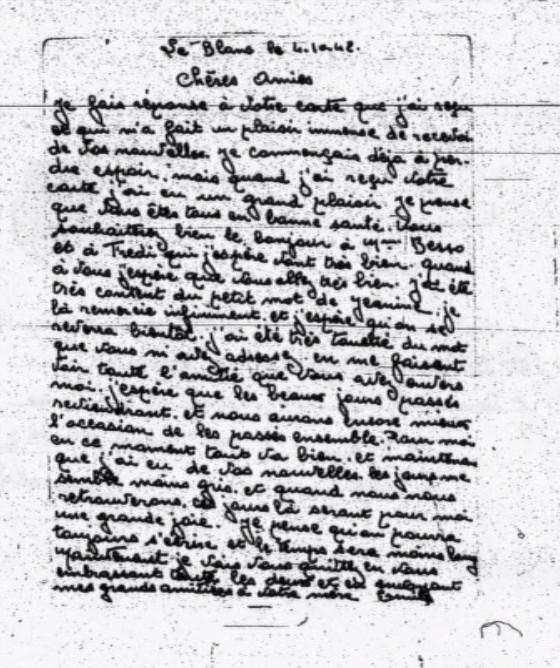 Le Blanc le 4.10.42.
Chères Amies
Je fais réponse à votre carte que j'ai reçu
et qui m'a fait un plaisir immense de recevoir
de vos nouvelles. Je commençais déja à per-
dre espoir. mais quand j'ai reçu votre
carte j'ai eu un grand plaisir. Je pense
que vous êtes tous en bonne santé. Vous
souhaiterez bien le bonjour à Mme Besso
et à Fredi qui j'espère vont très bien. quand
à vous j'espère que vous allez très bien. J'ai été
très content du petit mot de Jeanine. je
la remercie infiniment. et j'espère qu'on se
reverra bientôt. j'ai été très touché du mot
que vous m'avez adressez en me faisant
voir toute l'amitié que vous avez envers
moi. j'espère que les beaux jours passés
reviendront. et nous aurons encore mieux
l'occasion de les passés ensemble. Pour moi
en ce moment tout va bien. et maintenant
que j'ai eu de vos nouvelles. les jours me
semble moins gris. et quand nous nous
retrouverons. ces jours là seront pour moi
une grande joie. Je pense qu'on pourra
toujours s'écrire. et le temps sera moins long
Maintenant je vais vous quitter en vous
embrassant toute les deux et en
mes grands amitiées à votre mère